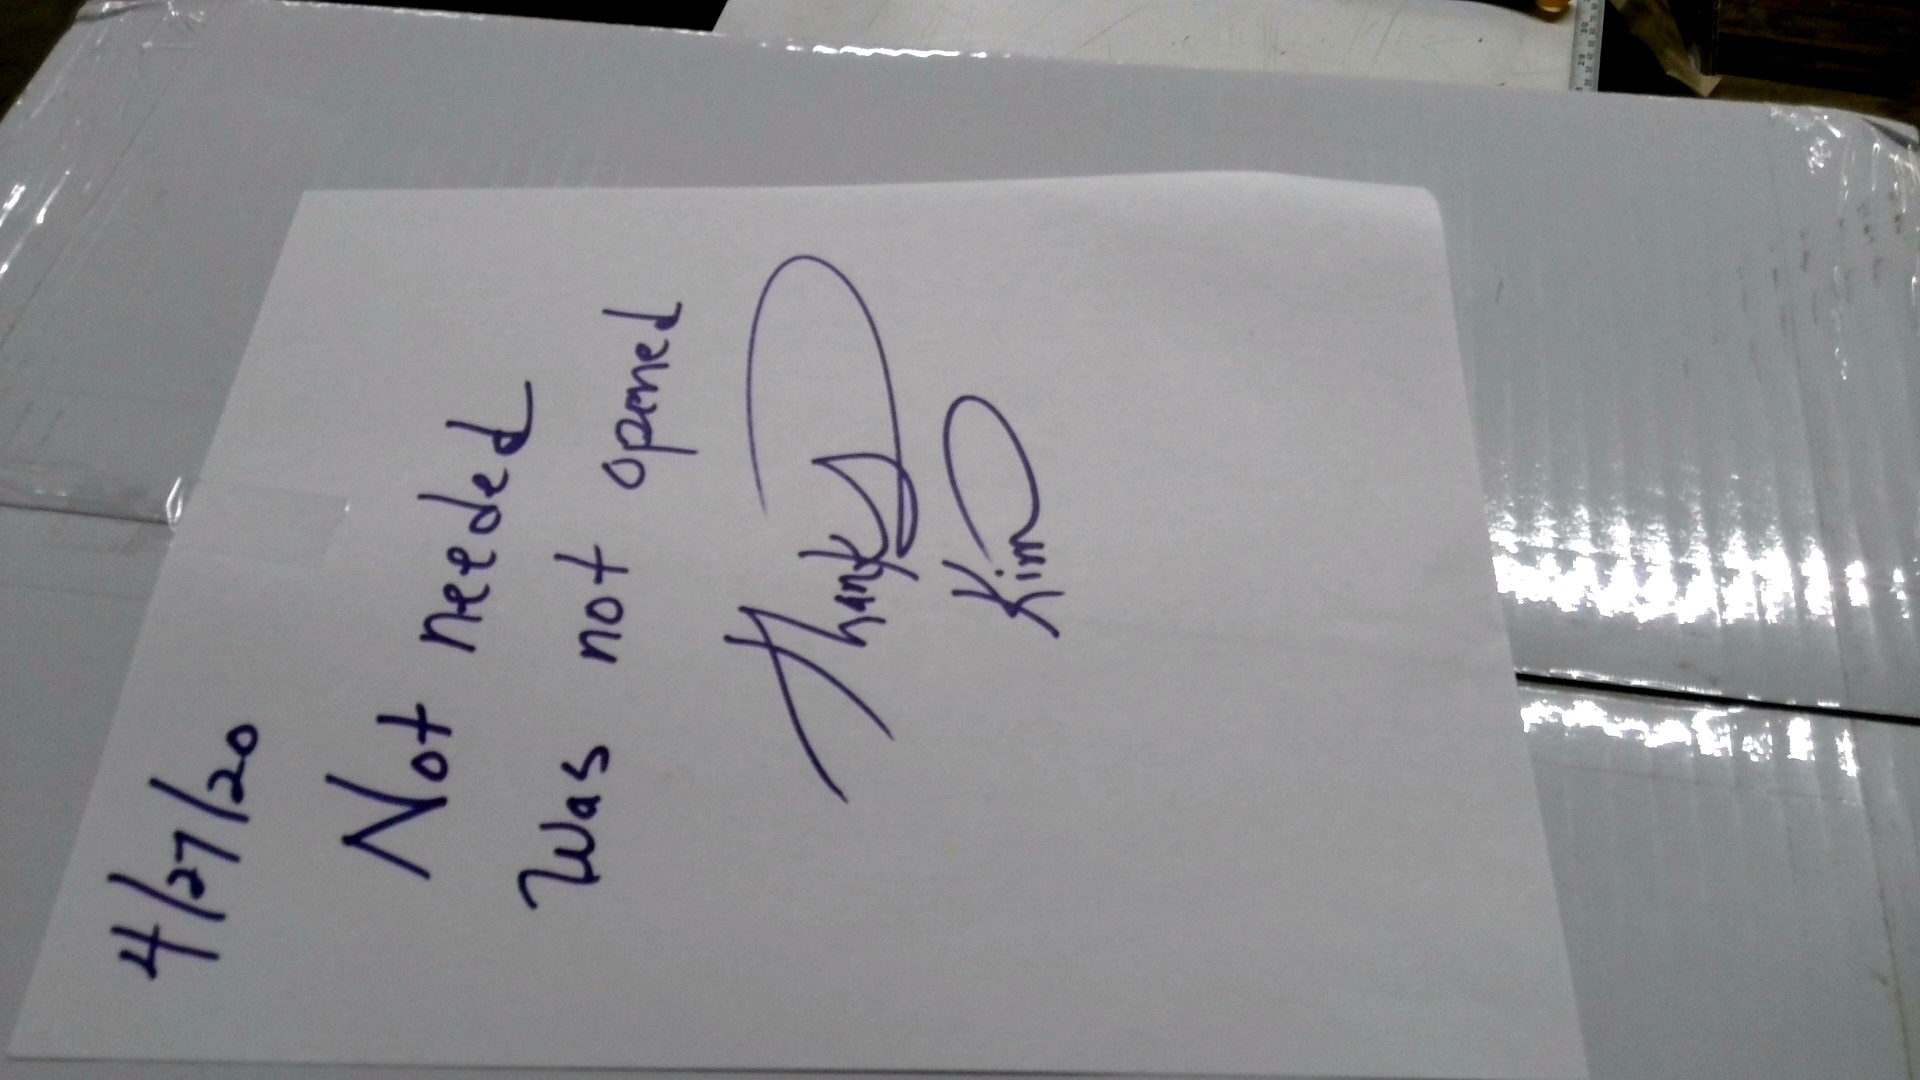 4/27/20
Not needed
Was not opened
Thanks
Kim